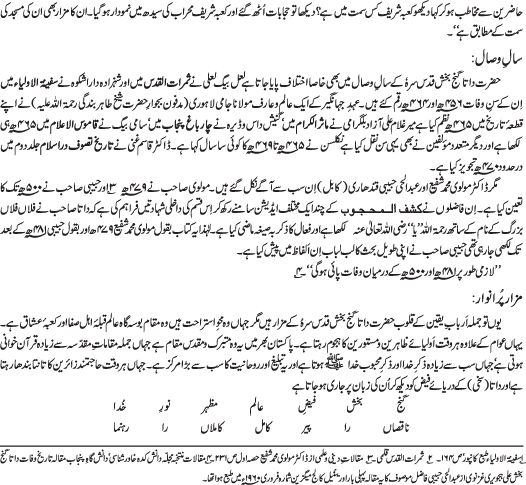 حاضرین سے مخاطب ہو کر کہا دیکھو کعبہ شریف کس سمت میں ہے؟ دیکھا تو حجابات اُٹھ گئے اور کعبہ شریف محراب کی سیدھ میں نمودار ہو گیا۔ ان کا مزار بھی ان کی مسجد کی
سمت کے مطابق ہے“۔
سالِ وصال:
حضرت داتا گنج بخش قدس سرہٗ کے سالِ وصال میں بھی خاصا اختلاف پایا جاتا ہے لعل بیگ لعلی نے ثمرات القدس میں اور شہزادہ داراشکوہ نے سفینۃ الاولیاء میں
اِن کے سن وفات ۴۵۶ھ اور ۴۶۴ھ رقم کئے ہیں۔ عہدِ جہانگیر کے ایک عالم و عارف مولانا جامی لاہوری (مدفون بجوار حضرت شیخ طاہر بندگی رحمۃ اللہ علیہ) نے اپنے
قطعہ تاریخ میں ۴۶۵ھ نظم کیا ہے میر غلام علی آزاد بلگرامی نے ماثر الکرام میں گنیش داس وڈیرہ نے چار باغ پنجاب میں سامی بیگ نے قاموس الاعلام میں ۴۶۵ھ ہی
لکھا ہے اور دیگر متعدد مؤلفین نے بھی یہی سن نقل کیا ہے نکلسن نے ۴۶۵ھ تا ۴۶۹ھ کا کوئی سا سال کہا ہے۔ ڈاکٹر قاسم غنی نے تاریخ تصوف در اسلام جلد دوم میں
در حدود ۴۷۰ھ تجویز کیا ہے۔
مگر ڈاکٹر مولوی محمد شفیع اور عبدالحی حبیبی قندھاری (کابل) اِن سب سے آگے نکل گئے ہیں۔ مولوی صاحب نے ۴۷۹ھ ۳؎ اور حبیبی صاحب نے ۵۰۰ھ تک کا
تعین کیا ہے۔ اِن فاضلوں نے کشف المحجوب کے چند ایک مختلف ایڈیشن سامنے رکھ کر اِس قسم کی داخلی شہادتیں فراہم کی ہے کہ داتا صاحب نے فلاں فلاں
بزرگ کے نام کے ساتھ رحمۃ اللہ ”یا“ رضی اللہ تعالیٰ عنہ لکھا ہے اور افعال کا ذکر بہ صیغہ ماضی کیا ہے۔ لہٰذا یہ کتاب بقول مولوی محمد شفیع ۴۷۹ھ اور بقول حبیبی ۴۸۱ھ کے بعد
تک لکھی جا رہی تھی حبیبی صاحب نے اپنی طویل بحث کا لب لباب اِن الفاظ میں پیش کیا ہے۔
”لازمی طور پر ۴۸۱ھ اور ۵۰۰ھ کے درمیان وفات پائی ہوگی“ ۴؎
مزارِ پُر انوار:
یوں تو جملہ اَرباب یقین کے قلوب حضرت داتا گنج بخش قدس سرہٗ کے مزار ہیں مگر جہاں وہ محوِ استراحت ہیں وہ مقام بوسہ گاہ عالم قبلۂ اہلِ صفا اور کعبۂ عشاق ہے۔
یہاں عوام کے علاوہ ہر وقت اولیائے ظاہرین و مستورین کا ہجوم رہتا ہے۔ پاکستان بھر میں یہ وہ متبرک و مقدس مقام ہے جہاں جملہ مقاماتِ مقدسہ سے زیادہ قرآن خوانی
ہوتی ہے جہاں سب سے زیادہ ذکرِ خدا اور ذکرِ محبوبِ خدا ﷺ ہوتا ہے اور یہ تبلیغ اور روحانیت کا سب سے بڑا مرکز ہے۔ جہاں ہر وقت حاجتمند زائرین کا تانتا بندھا رہتا
ہے اور داتا (سخی) کے دریائے فیض کو دیکھ کر اُن کی زبان پر جاری ہو جاتا ہے
گنج بخش فیضِ عالم مظہرِ نورِ خُدا
ناقصاں را پیرِ کامل کاملاں را رہنما
۱؎ سفینۃ الاولیا طبع کانپور ص ۱۶۴۔ ۲؎ ثمرات القدس قلمی۔ ۳؎ مقالات دینی و علمی از ڈاکٹر مولوی محمد شفیع حصہ اول ص ۲۳۱ ۴؎ مقالات منتخبہ مجلہ دانش کدہ خاور شناسی، دانش گاہ پنجاب مقالہ تاریخ وفات داتا گنج
بخش علی ہجویری غزنوی از عبدالحی حبیبی فاضل موصوف کا یہ مقالہ پہلی بار اورینٹیل کالج میگزین شمارہ فروری ۱۹۶۰ء میں طبع ہوا تھا۔